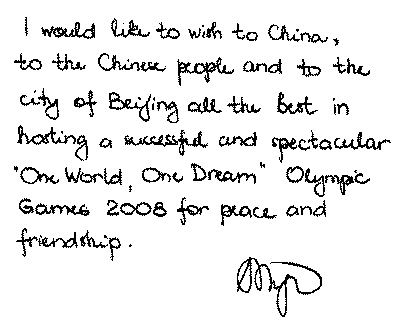 I would like to wish to China,
to the Chinese people and to the
city of Beijing all the best in
hosting a successful and spectacular
"One World, One Dream" Olympic
Games 2008 for peace and
friendship.